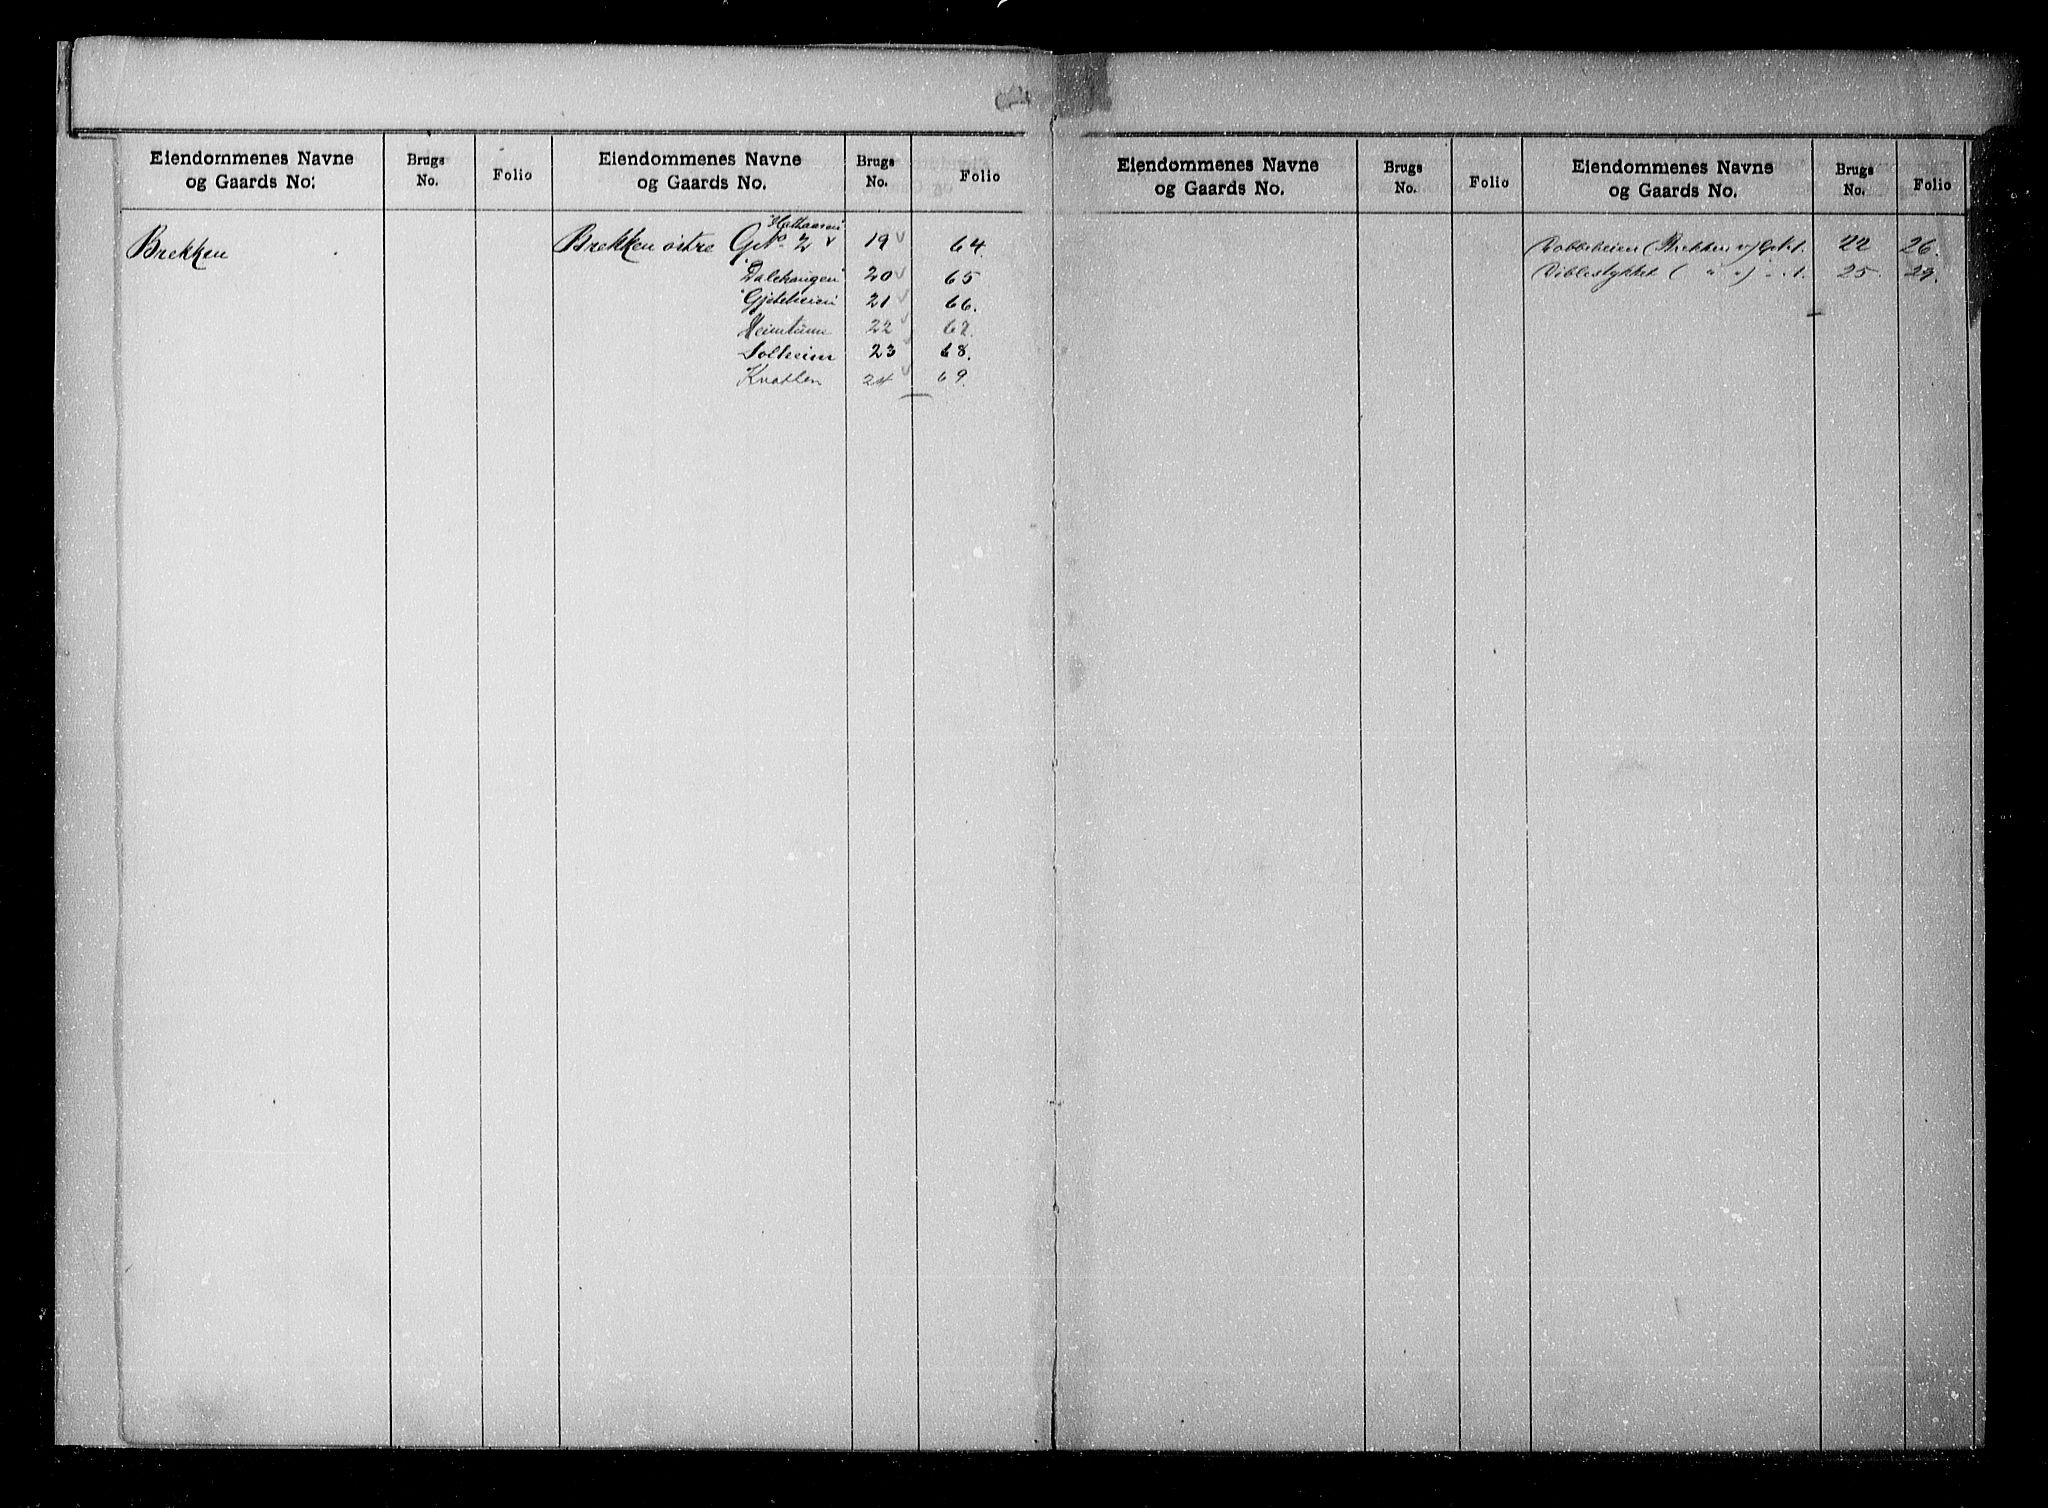 Eiendommenes Navne og Gaards No: Brugs No. Folio Eiendommenes Navne og Gaards No. Brugs No. Folio
Brekken
Brekken östre GNo. 2 19 64.
20 65
21 66.
Heimtun 22 67.
Solheim 23 68.
Knatten 24 69.
Eiendommenes Navne og Gaards No. Brugs No. Folio Eiendommenes Navne og Gaards No. Brugs No. Folio
(Brekken v) 22 26.
Viblestykket ( " " ) 25 29.